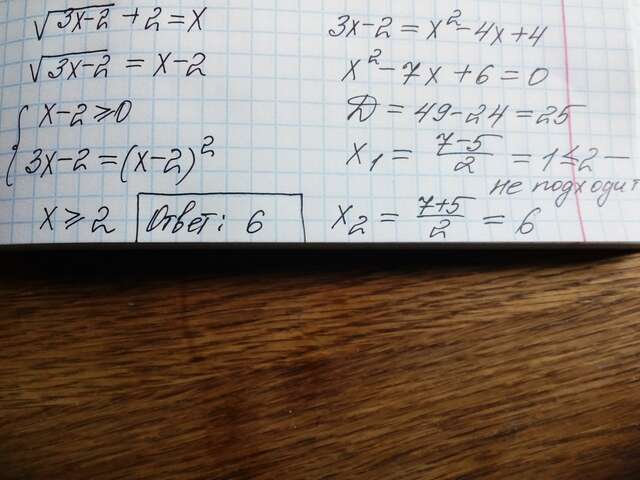 √3x-2 + 2 = x
√3x-2 = x-2
{ x-2 ⩾ 0
3x-2 = (x-2)²
x ⩾ 2
Ответ: 6
3x-2 = x²-4x+4
x²-7x+6=0
D = 49-24=25
x₁ = 7-5/2 = 1 ≤ 2 —
не подходит
x₂ = 7+5/2 = 6